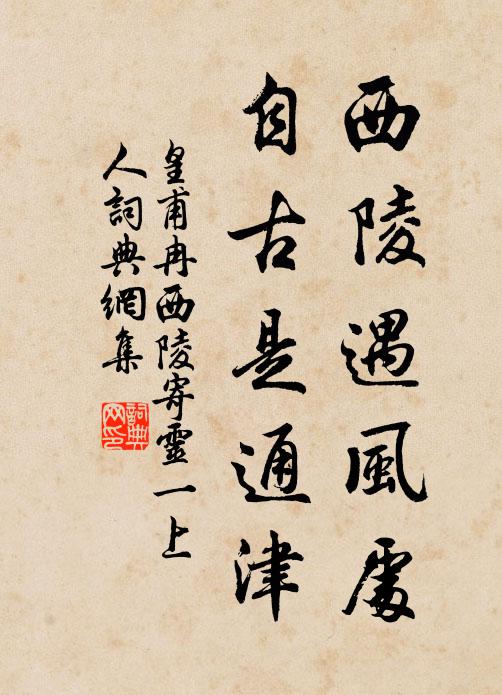 西陵遇風處
自古是通津
皇甫冉西陵寄靈一上
人詞典網集
詞典
网印